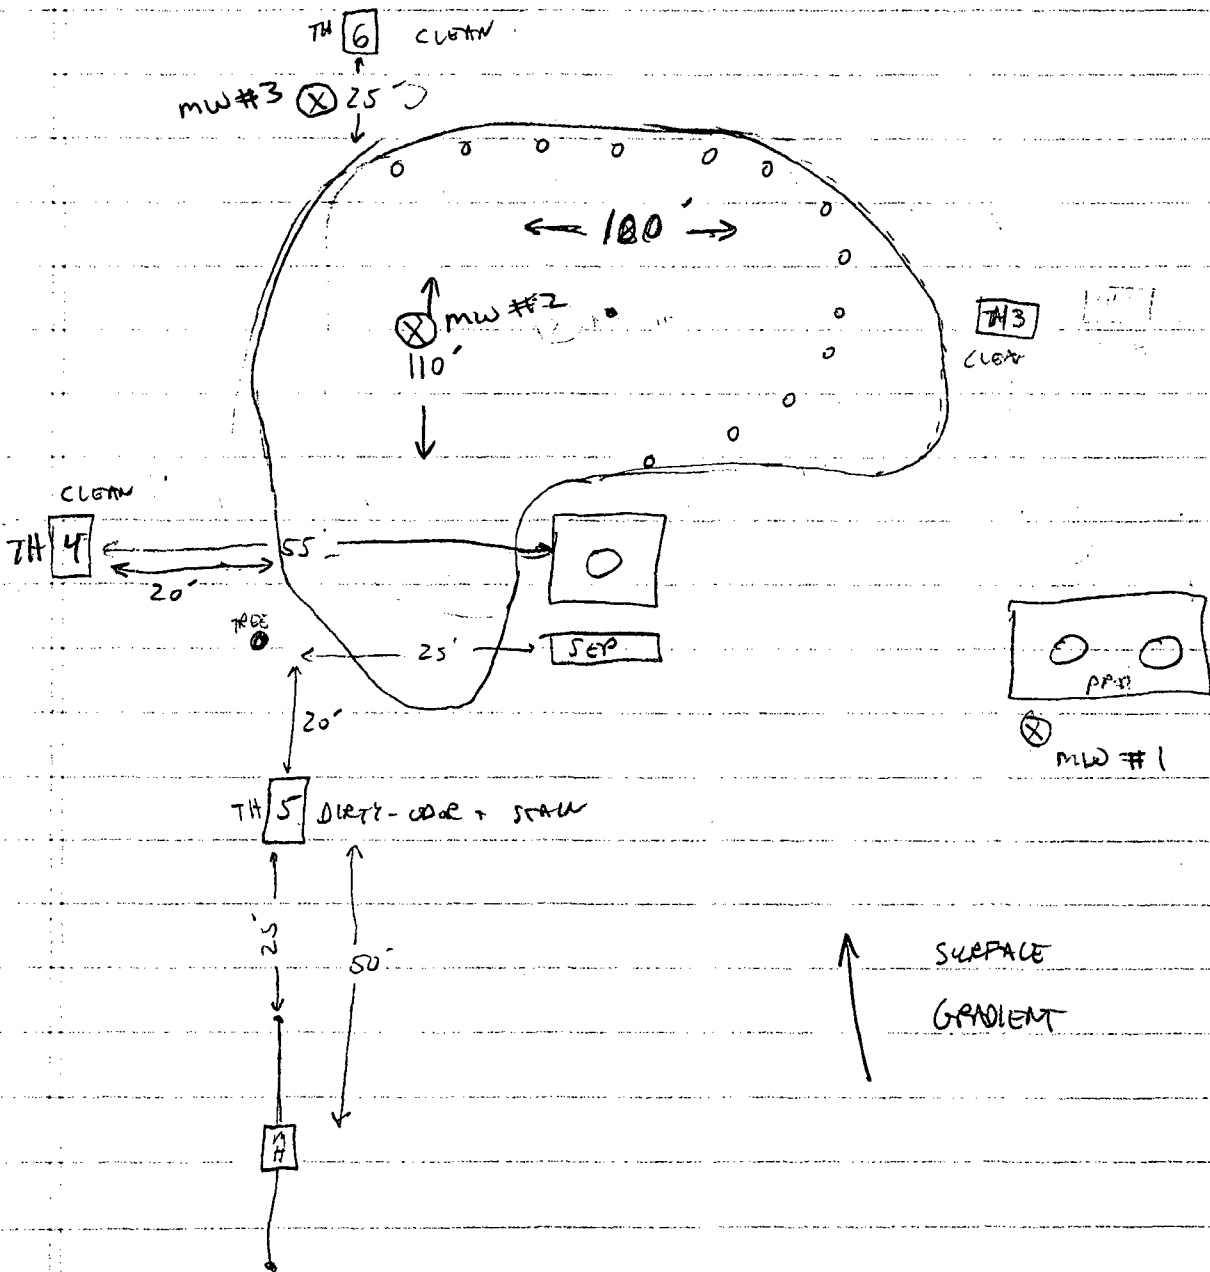 TH 6 CLEAN
MW #3 X 25'
100'
MW #2
X
110'
TH3
CLEAN
CLEAN
TH 4
55'
20'
TREE
25'
SEP
20'
X
MW #1
TH 5 DIRTY - ODOR + STAIN
25'
50'
SURFACE
GRADIENT